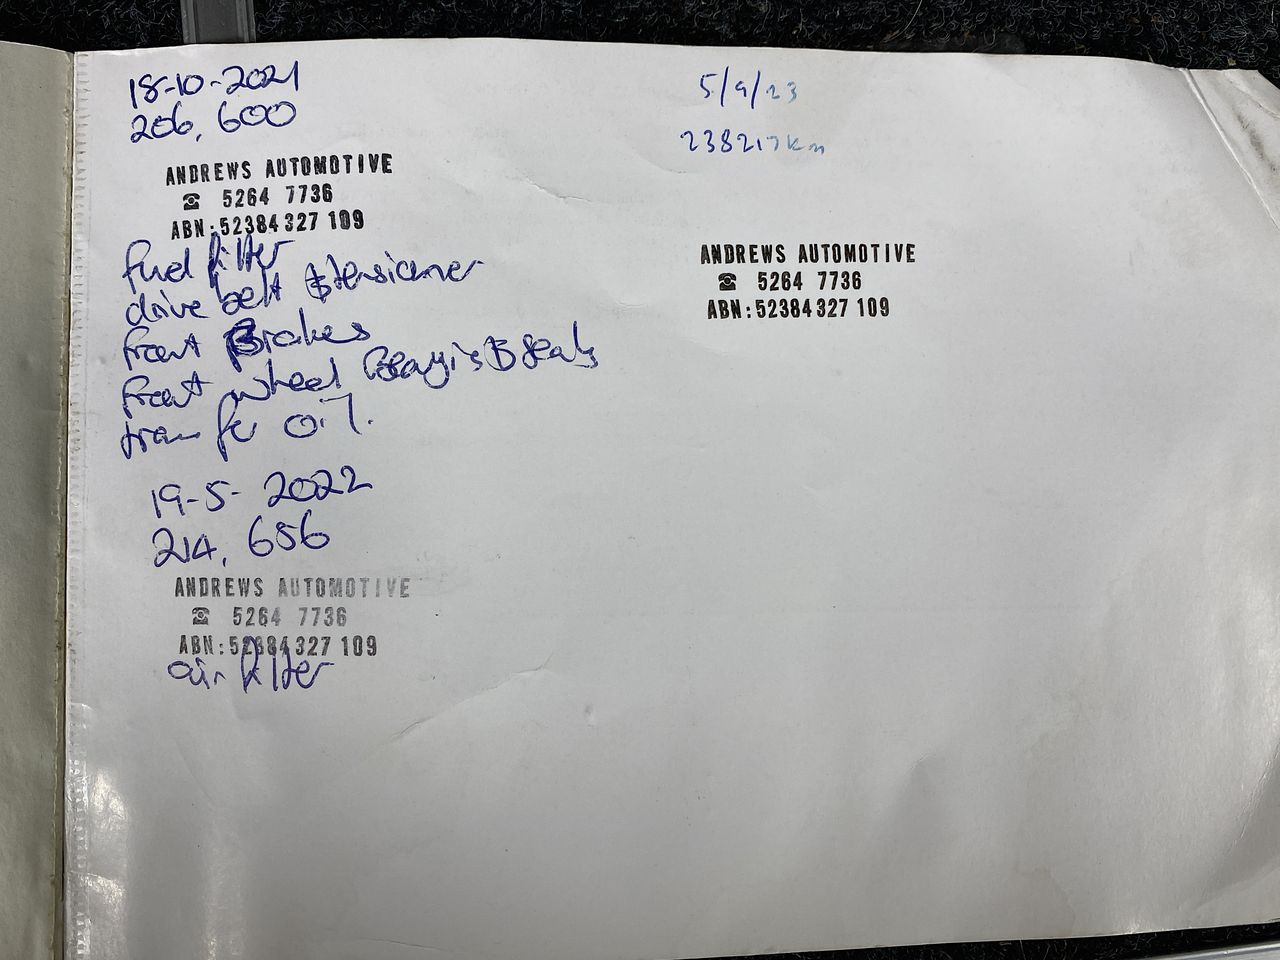 18-10-2021
206,600
ANDREWS AUTOMOTIVE
☎ 5264 7736
ABN:52384327 109
fuel filter
drive belt & tensioner
front Brakes
front wheel Bearings & seals
transfer oil
19-5-2022
214,656
ANDREWS AUTOMOTIVE
☎ 5264 7736
ABN:52384327 109
air filter
5/9/23
238217km
ANDREWS AUTOMOTIVE
☎ 5264 7736
ABN:52384327 109